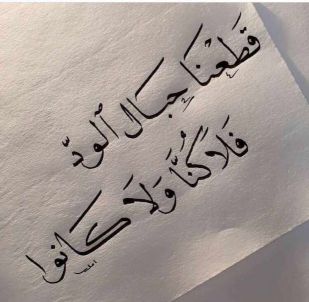 قَطَعْنَا حِبَالَ ٱلودِّ
فَلَا كُنَّا وَلَا كَانُوا